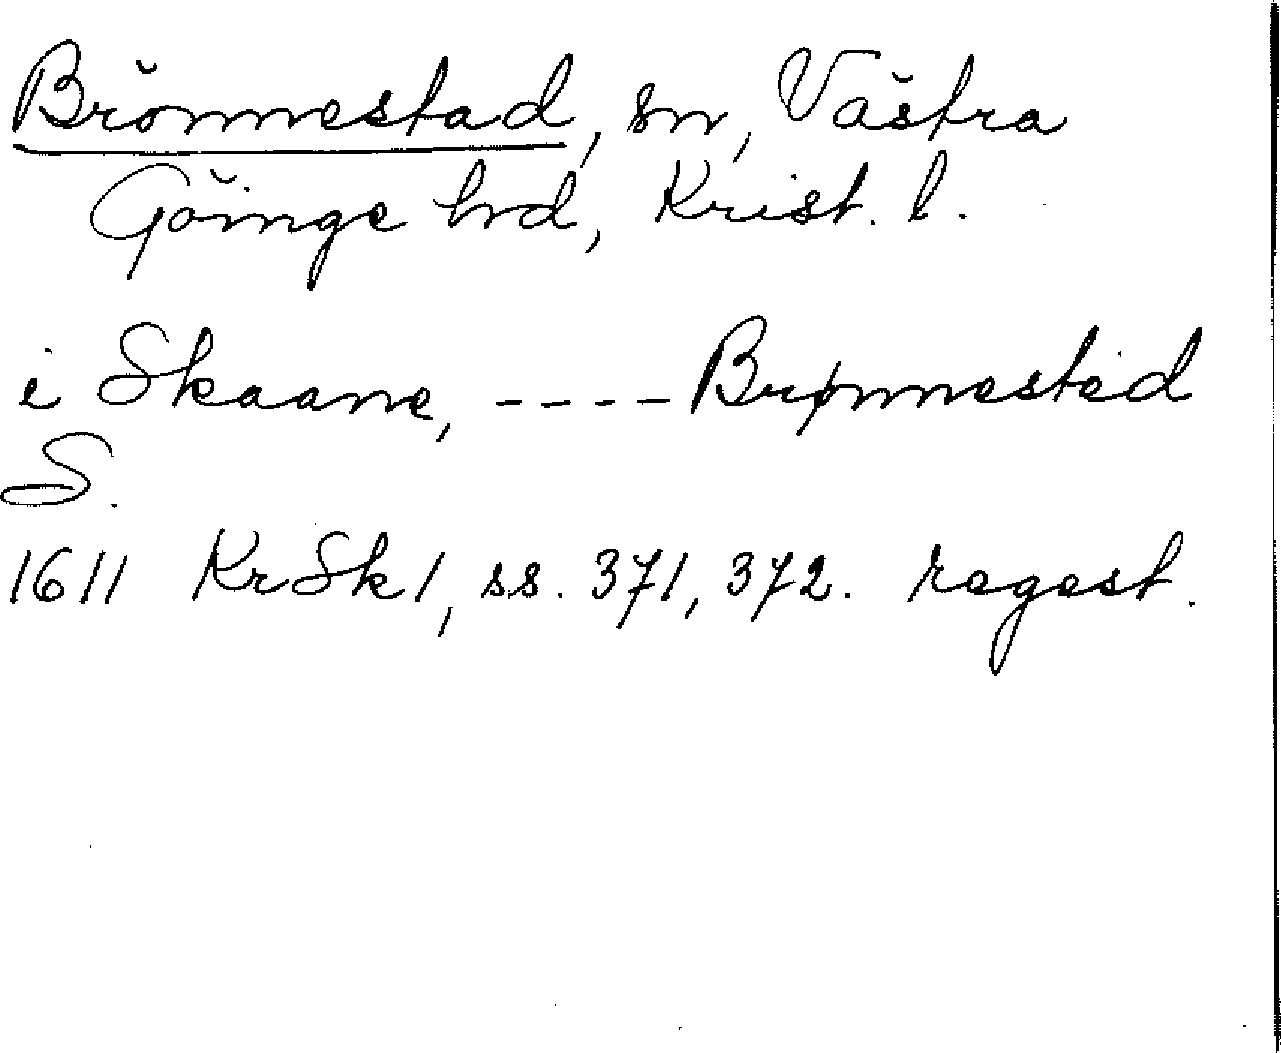 Brönnestad, sn, Västra
Göinge hrd, Krist. l.
i Skaane, ---- Brønnested
S.
1611 KrSk1, ss. 371, 372. regest.